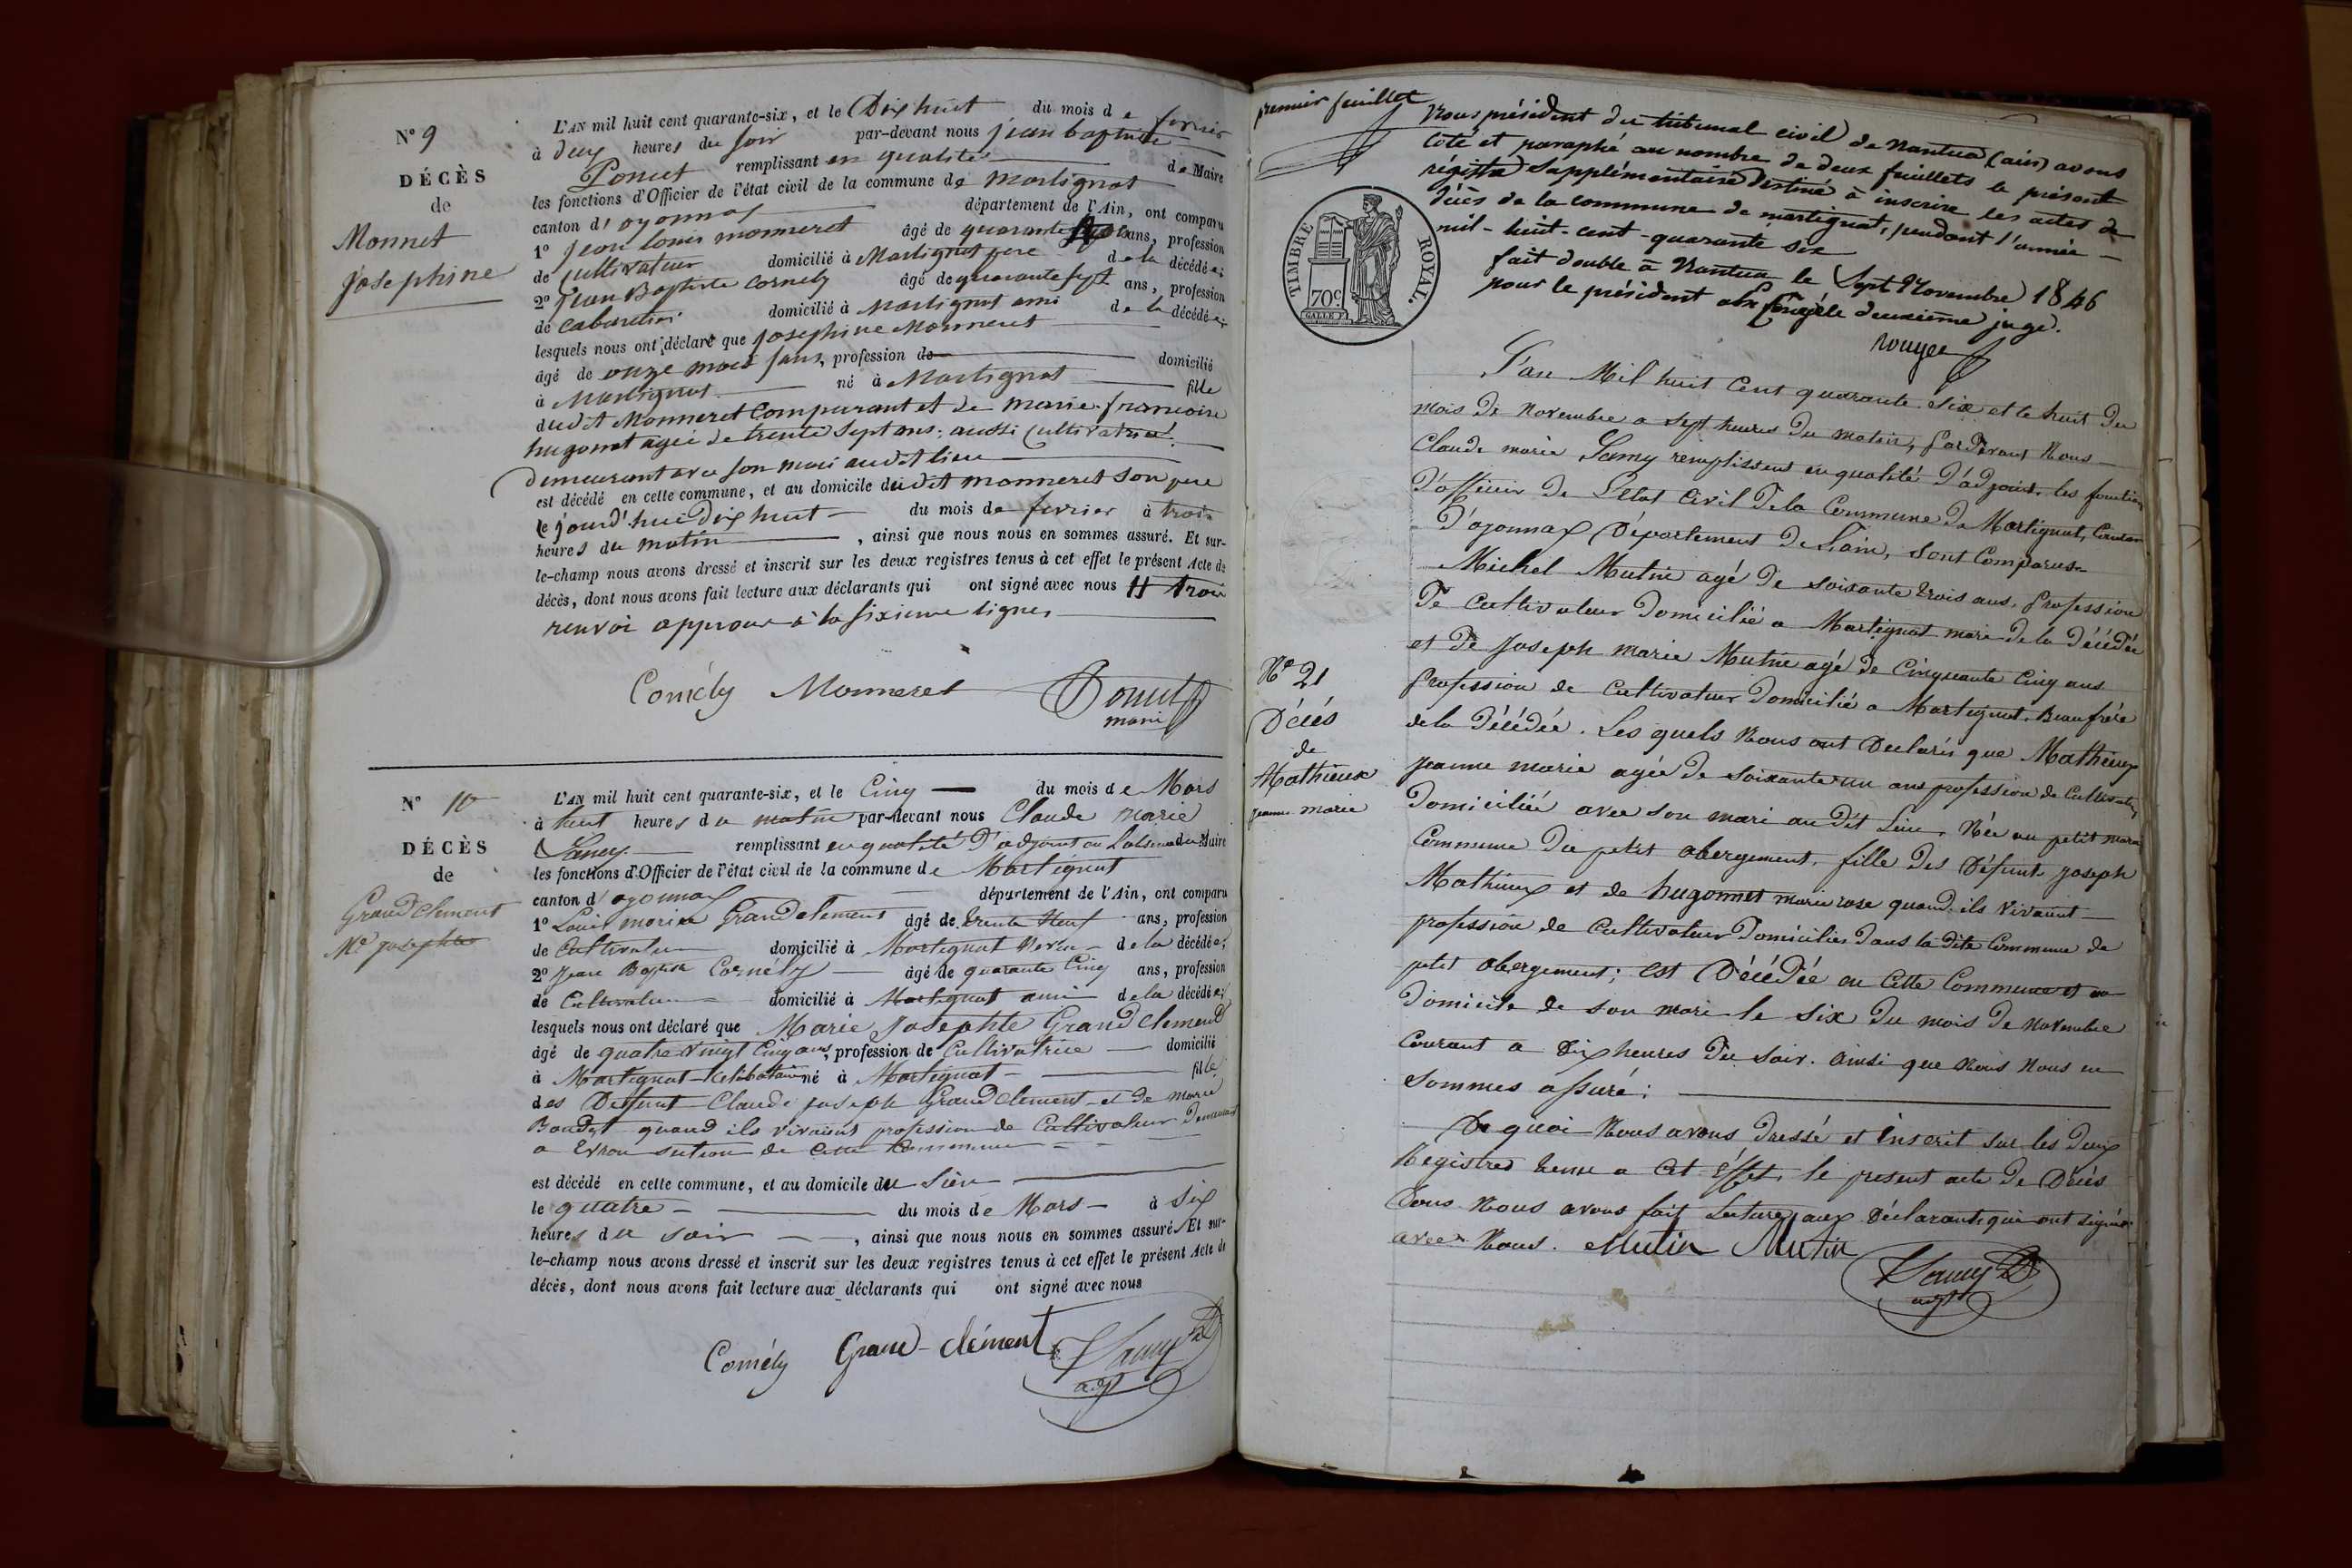 N° 9
DÉCÈS
de
Monnet
Josephine
L'AN mil huit cent quarante-six, et le Dix huit du mois de fevrier
à deux heures du soir par-devant nous jean baptiste
Poncet remplissant en qualité de Maire
les fonctions d'Officier de l'état civil de la commune de Martignat
canton d'oyonnax département de l'Ain, ont comparu
1° Jean Louis monneret âgé de quarante ans, profession
de Cultivateur domicilié à Martignat pere de la décédée;
2° Jean Baptiste Cornély âgé de quarante sept ans, profession
de Cabaretier domicilié à Martignat ami de la décédée;
lesquels nous ont déclaré que Josephine Monneret
âgé de onze mois sans, profession de domicilié
à Martignat né à Martignat fille
dudit Monneret Comparant et de marie francoise
hugonnet agée de trente Sept ans, aussi Cultivatrice
Demeurant avec son mari audit lieu
est décédé en cette commune, et au domicile dudit monneret son pere
le jourd'hui Dix huit du mois de fevrier à trois
heures du matin, ainsi que nous nous en sommes assuré. Et sur-
le-champ nous avons dressé et inscrit sur les deux registres tenus à cet effet le présent Acte de
décès, dont nous avons fait lecture aux déclarants qui ont signé avec nous # trois
renvoi approuvé à la sixieme ligne,
Cornély Monneret Poncet
maire
N° 10
DÉCÈS
de
Grandclement
Me Josephte
L'AN mil huit cent quarante-six, et le Cinq du mois de Mars
à huit heures du matin par-devant nous Claude Marie
Lamy remplissant en qualité D'adjoint en L'absence du Maire
les fonctions d'Officier de l'état civil de la commune de Martignat
canton d'oyonnax département de l'Ain, ont comparu
1° Louis marie Grandclement âgé de trente Neuf ans, profession
de Cultivateur domicilié à Martignat Neveu de la décédée;
2° Jean Baptiste Cornély âgé de quarante Cinq ans, profession
de Cultivateur domicilié à Martignat ami de la décédée;
lesquels nous ont déclaré que Marie Josephte Grandclement
âgé de quatre vingt Cinq ans, profession de Cultivatrice domicilié
à Martignat Célibataire né à Martignat fille
des Deffunt Claude joseph Grandclement et de marie
Bondet quand ils vivaient profession de Cultivateur Demeurant
a Evron section de Cette Commune
est décédé en cette commune, et au domicile du Sien
le quatre du mois de Mars à Six
heures du soir, ainsi que nous nous en sommes assuré. Et sur-
le-champ nous avons dressé et inscrit sur les deux registres tenus à cet effet le présent Acte de
décès, dont nous avons fait lecture aux déclarants qui ont signé avec nous
Cornély Grand-clément Lamy
adjt
premier feuillet
Nous président du tribunal civil de Nantua (ain) avons
coté et paraphé au nombre de deux feuillets le présent
régistre supplémentaire destiné à inscrire les actes de
décès de la commune de martignat, pendant l'année
mil-huit-cent-quarante six
fait double à Nantua le Sept Novembre 1846
pour le président le deuxième juge.
rouyer
TIMBRE ROYAL.
70c
N° 21
Décés
de
Mathieux
jeanne marie
L'an Mil huit Cent quarante Six et le huit du
mois de Novembre a Sept heures du matin, Pardevant Nous
Claude marie Lamy remplissant en qualité D'adjoint les fonctions
D'officier De L'Etat Civil De la Commune De Martignat, Canton
D'oyonnax Département De L'ain, Sont Comparus
Michel Mutin agé De soixante trois ans, Profession
De Cultivateur Domicilié a Martignat mari De la Décédée
et De Joseph marie Mutin agé De Cinquante Cinq ans
Profession de Cultivateur Domicilié a Martignat, Beaufrére
de la Décédée. Les quels Nous ont Declarés que Mathieux
jeanne marie agée De soixante un ans profession de Cultivatrice
Domiciliée avec son mari au Dit Lieu. Née au petit
Commune Du petit abergement, fille Des Défunt joseph
Mathieux et de hugonnet marie rose quand ils Vivaient
profession de Cultivateur Domiciliés Dans la Dite Commune de
petit abergement; est Décédée en Cette Commune et au
Domicile de son mari le six Du mois De Novembre
Courant a Dix heures Du Soir. ainsi que Nous Nous en
Sommes assuré:
De quoi Nous avons Dressé et Inscrit sur les Deux
Registres tenus a Cet Effet, le present acte De Décés
Dont Nous avons fait Lecture aux Déclarants qui ont Signés
avec Nous. Mutin Mutin
Lamy
adjt